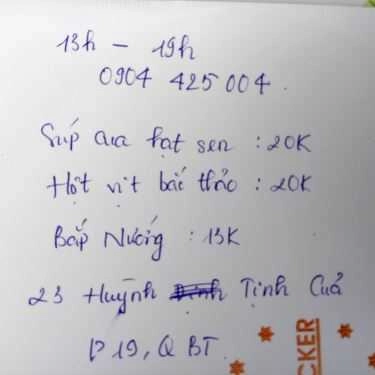 13h - 19h
0904 425 004.
Súp cua hạt sen : 20K
Hột vịt bắc thảo : 20K
Bắp Nướng : 13K
23 Huỳnh Tịnh Của
P 19, Q BT.
CKER